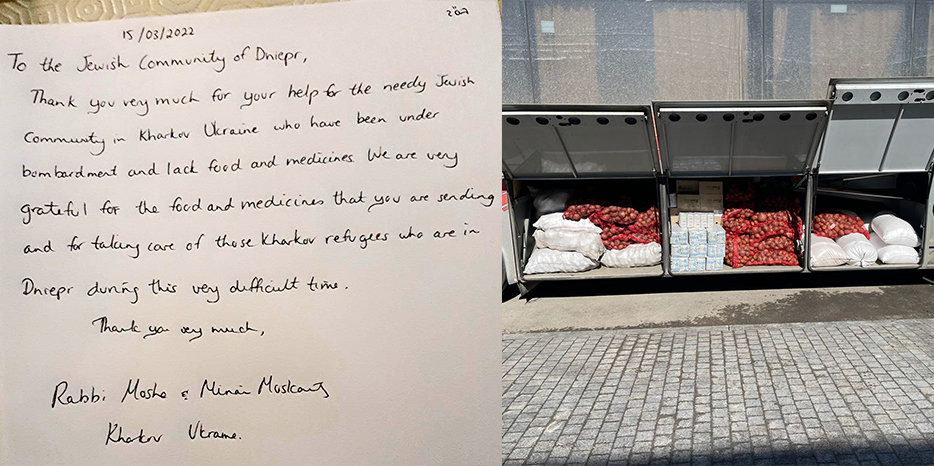 בס"ד
15/03/2022
To the Jewish Community of Dniepr,
Thank you very much for your help for the needy Jewish
Community in Kharkov Ukraine who have been under
bombardment and lack food and medicines. We are very
grateful for the food and medicines that you are sending
and for taking care of those Kharkov refugees who are in
Dniepr during this very difficult time.
Thank you very much,
Rabbi Moshe & Miriam Moskovitz
Kharkov Ukraine.